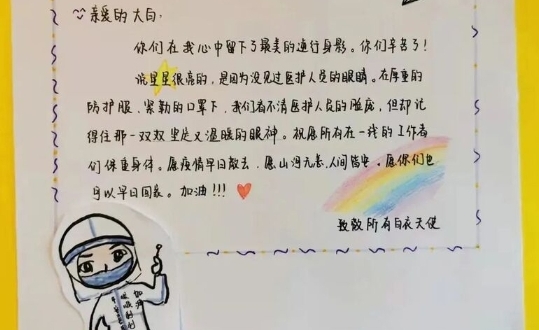 亲爱的大白:
你们在我心中留下了最美的逆行身影。你们辛苦了!
说星星很亮的,是因为没见过医护人员的眼睛。在厚重的
防护服、紧勒的口罩下,我们看不清医护人员的脸庞,但却记
得住那一双双坚定又温暖的眼神。祝愿所有在一线的工作者
们保重身体。愿疫情早日散去,愿山河无恙,人间皆安。愿你们也
可以早日回家。加油!!!
致敬所有白衣天使
加油